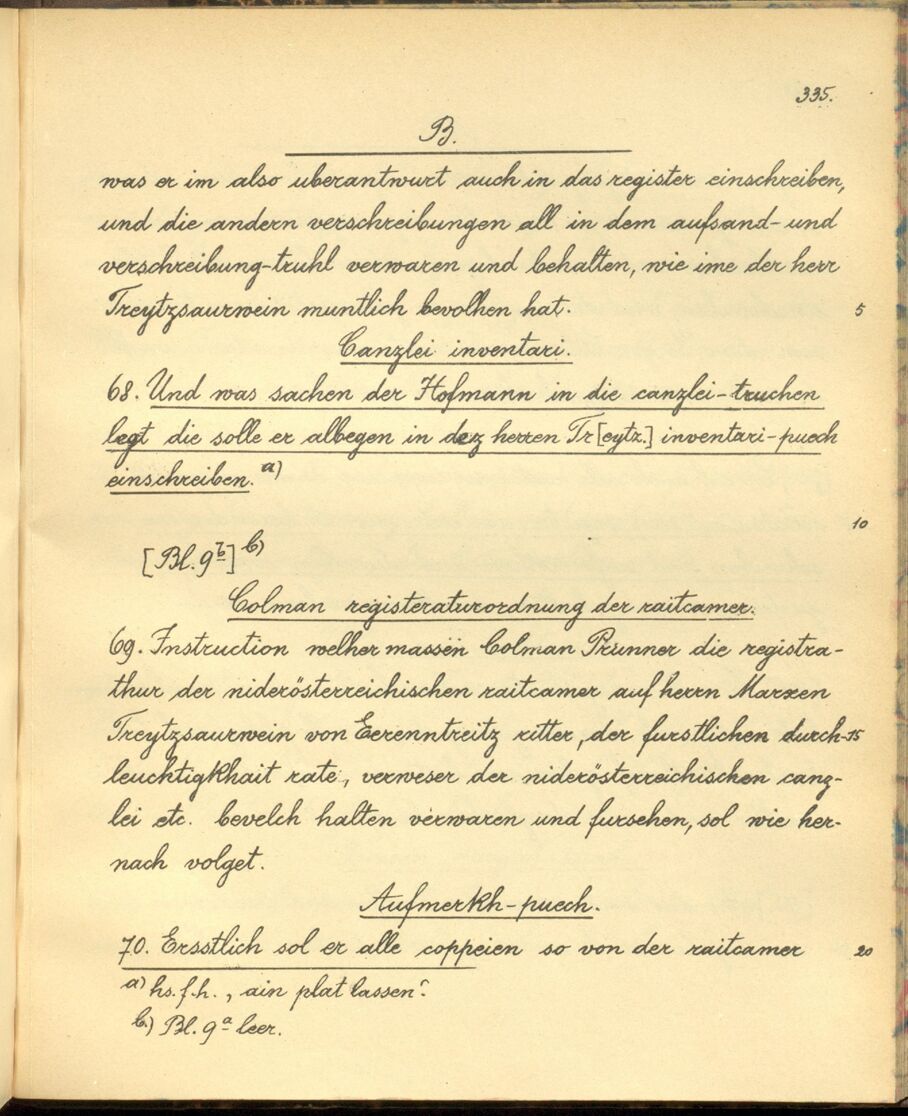 335.
B.
was er im also uberantwurt auch in das register einschreiben,
und die andern verschreibungen all in dem aufsand- und
verschreibung-truhl verwaren und behalten, wie ime der herr
Treytzsaurwein muntlich bevolhen hat.
5
Canzlei inventari.
68. Und was sachen der Hofmann in die canzlei-truchen
legt die solle er albegen in dez herren Tr[eytz.] inventari-puech
einschreiben. a)
10
[Bl. 9b] b)
Colman registeraturordnung der raitcamer.
69. Instruction welher massen Colman Prunner die registra-
thur der niderösterreichischen raitcamer auf herrn Marxen
Treytzsaurwein von Eerenntreitz ritter, der furstlichen durch-15
leuchtigkhait rate, verweser der niderösterreichischen canz-
lei etc. bevelch halten verwaren und fursehen, sol wie her-
nach volget.
Aufmerkh-puech.
70. Ersstlich sol er alle coppeien so von der raitcamer 20
a) hs. f. h. „ ain plat lassen“.
b) Bl. 9a leer.